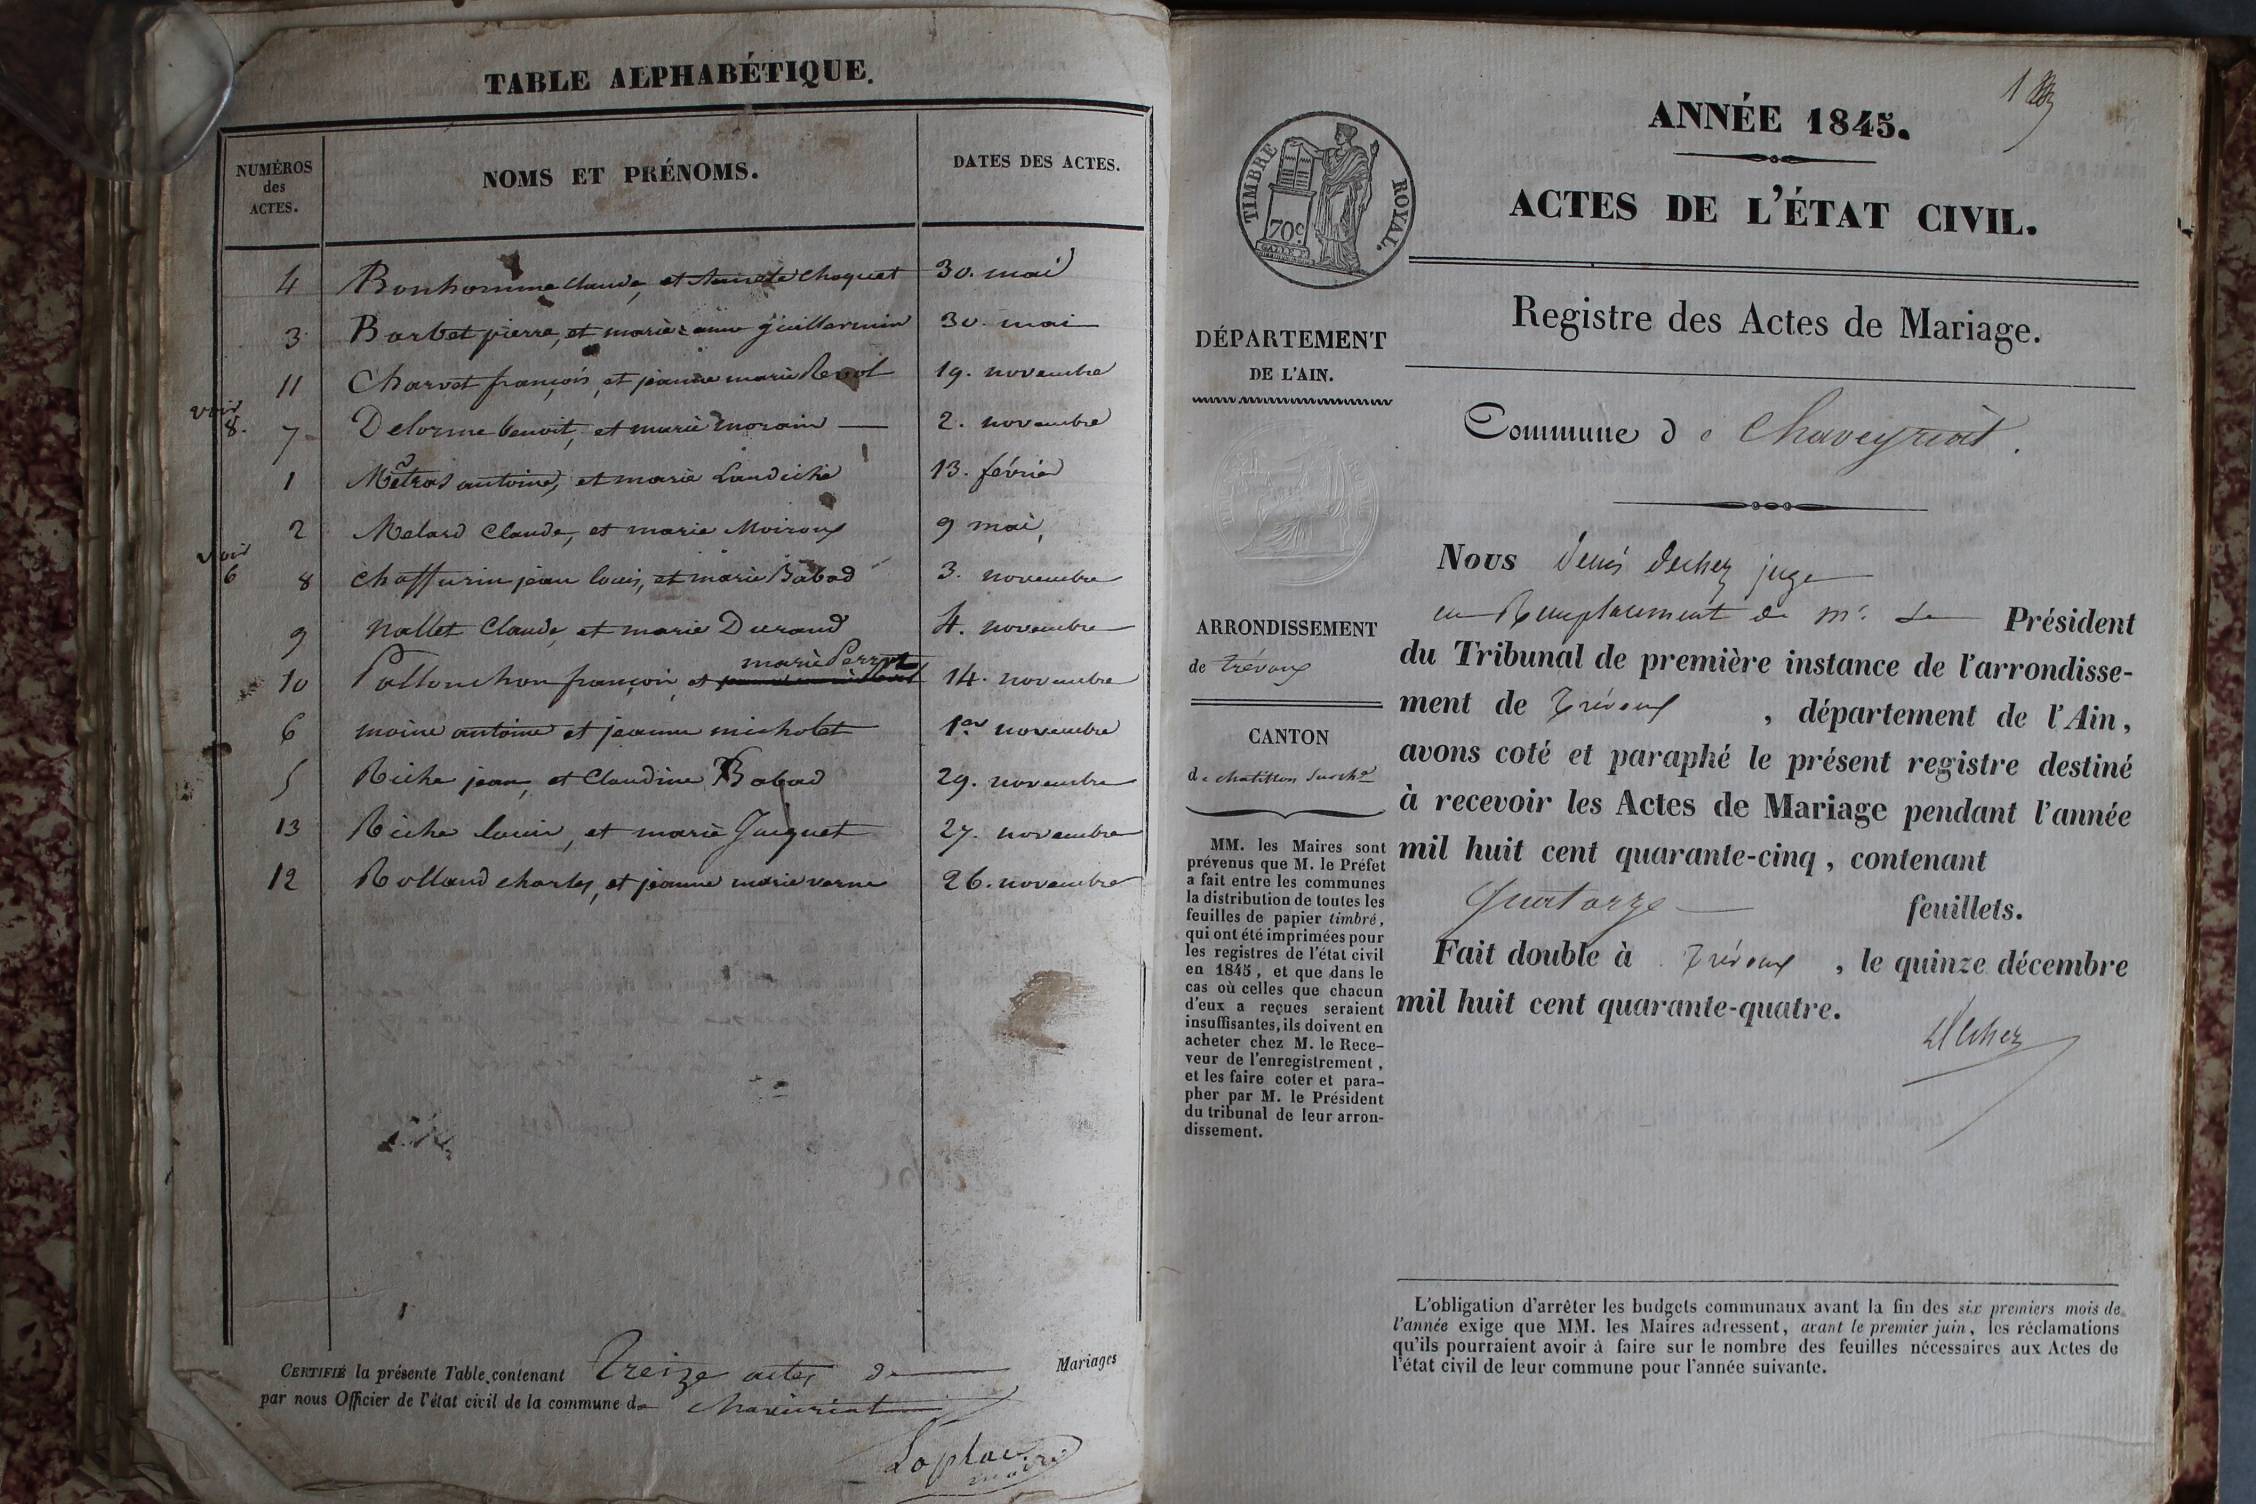 TABLE ALPHABÉTIQUE.
NUMÉROS
des
ACTES.
NOMS ET PRÉNOMS.
DATES DES ACTES.
4 Bonhomme Claude, et Choquet 30. mai
3 Barbet pierre, et marie-anne guillermin 30 mai
11 Charvet françois, et jeanne marie Revol 19. novembre
voir
8. 7 Delorme benoit, et marie morain 2. novembre
1 Métras antoine, et marie Landiche 13. février
2 Melard Claude, et marie Moiroux 9 mai,
voir
6 8 chaffurin jean louis, et marie Babad 3. novembre
9 Nallet Claude, et marie Durand 4. novembre
marie Perret
10 Pallonchon françois, et 14. novembre
6 moine antoine et jeanne micholet 1er novembre
5 Riche jean, et Claudine Babad 29. novembre
13 Riche louis, et marie Juguet 27. novembre
12 Rolland charles, et jeanne marie verne 26. novembre
CERTIFIÉ la présente Table contenant Treize actes de Mariages
par nous Officier de l'état civil de la commune de chaveiriat
Laplace
maire
1
ANNÉE 1845.
TIMBRE ROYAL.
70c.
ACTES DE L'ÉTAT CIVIL.
Registre des Actes de Mariage.
DÉPARTEMENT
DE L'AIN.
Commune de Chaveyriat.
ARRONDISSEMENT
de trévoux
CANTON
de chatillon sur ch.ne
MM. les Maires sont
prévenus que M. le Préfet
a fait entre les communes
la distribution de toutes les
feuilles de papier timbré,
qui ont été imprimées pour
les registres de l'état civil
en 1845, et que dans le
cas où celles que chacun
d'eux a reçues seraient
insuffisantes, ils doivent en
acheter chez M. le Rece-
veur de l'enregistrement,
et les faire coter et para-
pher par M. le Président
du tribunal de leur arron-
dissement.
Nous Denis Dechez juge
en Remplacement de mr. Le Président
du Tribunal de première instance de l'arrondisse-
ment de Trévoux , département de l'Ain,
avons coté et paraphé le présent registre destiné
à recevoir les Actes de Mariage pendant l'année
mil huit cent quarante-cinq, contenant
Quatorze feuillets.
Fait double à Trévoux , le quinze décembre
mil huit cent quarante-quatre.
Dechez
L'obligation d'arrêter les budgets communaux avant la fin des six premiers mois de
l'année exige que MM. les Maires adressent, avant le premier juin, les réclamations
qu'ils pourraient avoir à faire sur le nombre des feuilles nécessaires aux Actes de
l'état civil de leur commune pour l'année suivante.